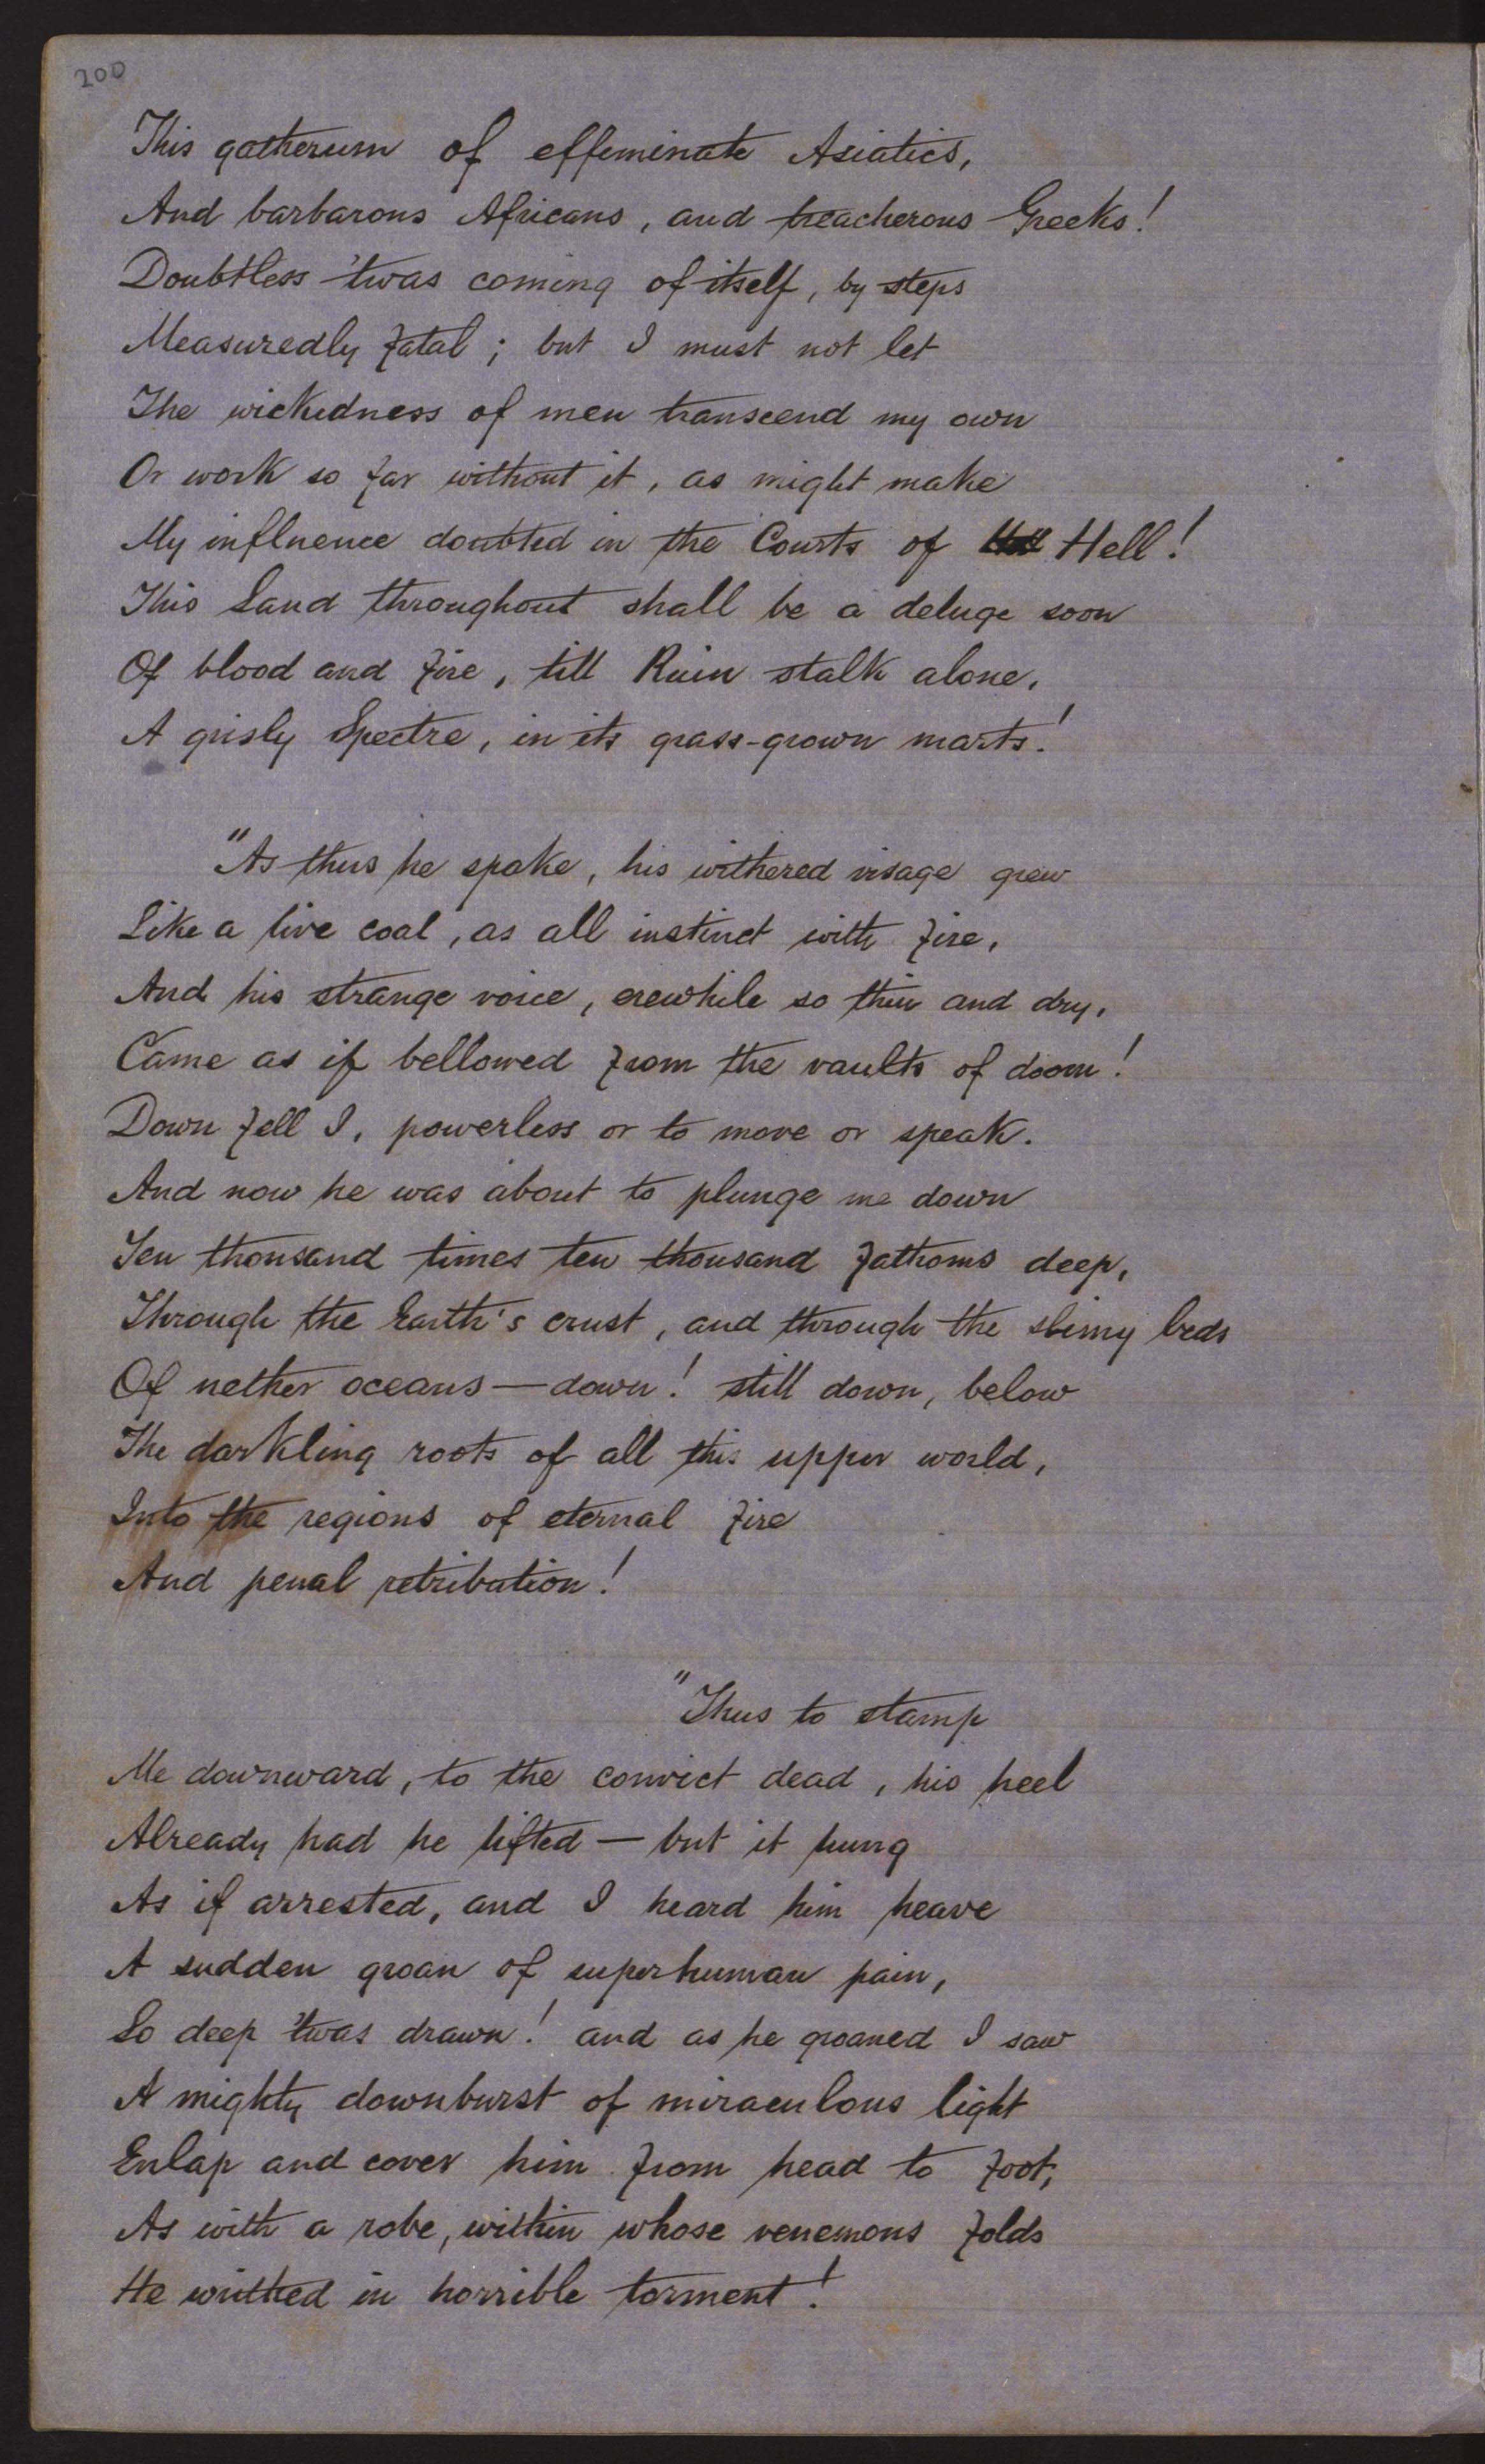 200
This gatherum of effeminate Asiatics,
And barbarous Africans, and treacherous Greeks!
Doubtless 'twas coming of itself, by steps
Measuredly fatal; but I must not let
The wickedness of men transcend my own
Or work so far without it, as might make
My influence doubted in the Courts of Hell!
This Land throughout shall be a deluge soon
Of blood and fire, till Ruin stalk alone,
A grisly Spectre, in its grass-grown marts!
"As thus he spake, his withered visage grew
Like a live coal, as all instinct with fire,
And his strange voice, erewhile so thin and dry,
Came as if bellowed from the vaults of doom!
Down fell I, powerless or to move or speak.
And now he was about to plunge me down
Ten thousand times ten thousand fathoms deep,
Through the Earth's crust, and through the slimy beds
Of nether oceans—down! still down, below
The darkling roots of all this upper world,
Into the regions of eternal fire
And penal retribution!
"Thus to stamp
Me downward, to the convict dead, his heel
Already had he lifted—but it hung
As if arrested, and I heard him heave
A sudden groan of superhuman pain,
So deep 'twas drawn! and as he groaned I saw
A mighty downburst of miraculous light
Enlap and cover him from head to foot,
As with a robe, within whose venemous folds
He writhed in horrible torment!